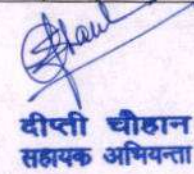 दीप्ती चौहान
सहायक अभियन्ता